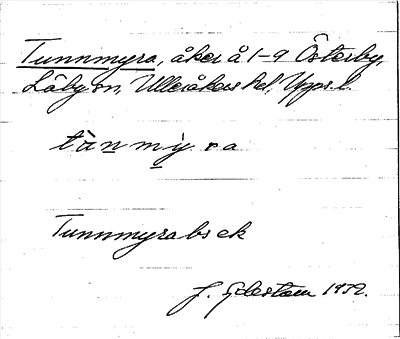 Tunnmyra, åker å 1-9 Österby,
Läby sn, Ulleråkers hd, Upps. l.
tànmỳra
Tunnmyrabäck
J. 1952.